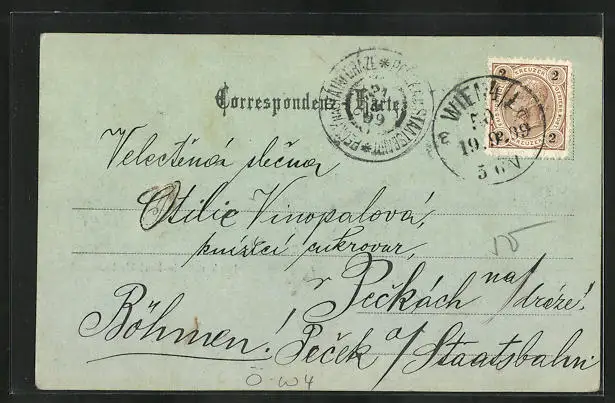 Correspondenz-Karte
PEČKY NA ST. DRÁZE * PEČEK A/D STAATSBAHN *
99
WIEN 4/1
99
5
2 KREUZER 2
2 2
Velectěná slečna
Otilie Vinopalová,
knížecí cukrovar,
v Pečkách na/dráze!
Böhmen! Peček a/Staatsbahn
Ö-W4